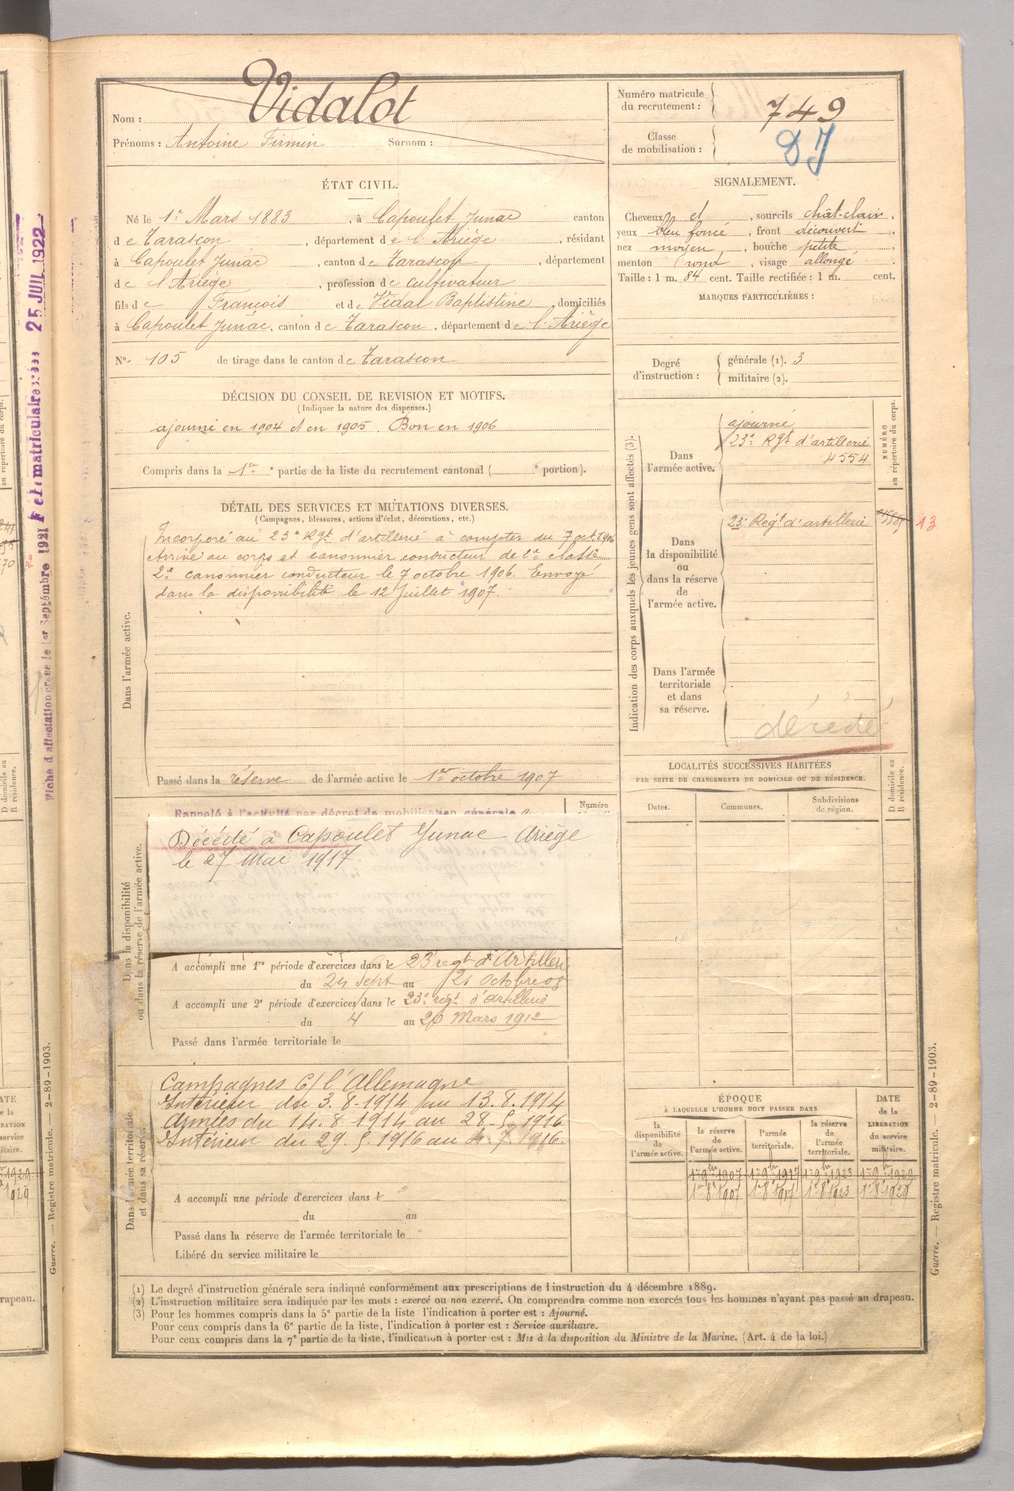 Nom : Vidalot
Prénoms : Antoine Firmin Surnom :
Numéro matricule du recrutement : 749
Classe de mobilisation :
ÉTAT CIVIL.
Né le 1er Mars 1883, à Capoulet Junac canton
de Tarascon, département de l'Ariège, résidant
à Capoulet Junac, canton de Tarascon, département
de l'Ariège, profession de cultivateur
fils de François et de Vidal Baptistine, domiciliés
à Capoulet Junac, canton de Tarascon, département de l'Ariège
No. 105 de tirage dans le canton de Tarascon
SIGNALEMENT.
Cheveux et, sourcils chât-clair,
yeux bleu foncé, front découvert,
nez moyen, bouche petite,
menton rond, visage allongé.
Taille : 1 m. 84 cent. Taille rectifiée : 1 m. cent.
MARQUES PARTICULIÈRES :
Degré d'instruction : générale (1). 3
militaire (2).
DÉCISION DU CONSEIL DE REVISION ET MOTIFS.
(Indiquer la nature des dispenses.)
ajourné en 1904 et en 1905. Bon en 1906
Compris dans la 1re partie de la liste du recrutement cantonal ( e portion).
DÉTAIL DES SERVICES ET MUTATIONS DIVERSES.
(Campagnes, blessures, actions d'éclat, décorations, etc.)
Dans l'armée active.
Incorporé au 23e Rgt d'artillerie à compter du 7 oct. 1906
Arrivé au corps et canonnier conducteur de 2e classe
2e canonnier conducteur le 7 octobre 1906. Envoyé
dans la disponibilité le 12 Juillet 1907.
Passé dans la réserve de l'armée active le 1er octobre 1907
Indication des corps auxquels les jeunes gens sont affectés (3).
NUMÉRO au répertoire du corps.
Dans l'armée active.
ajourné
23e Rgt d'artillerie
4554
Dans la disponibilité ou dans la réserve de l'armée active.
23e Regt d'artillerie
13
Dans l'armée territoriale et dans sa réserve.
décédé
LOCALITÉS SUCCESSIVES HABITÉES
PAR SUITE DE CHANGEMENTS DE DOMICILE OU DE RÉSIDENCE.
Dates. Communes. Subdivisions de région.
D domicile ou R résidence.
Dans la disponibilité ou dans la réserve de l'armée active.
Rappelé à l'activité par décret de mobilisation générale
Numéro
Décédé à Capoulet Junac Ariège
le 27 Mai 1917.
A accompli une 1re période d'exercices dans le 23 regt d'Artillerie
du 24 Sept au 21 Octobre 08
A accompli une 2e période d'exercices dans le 23e regt d'Artillerie
du 4 au 20 Mars 1912
Passé dans l'armée territoriale le
Dans l'armée territoriale et dans sa réserve.
Campagnes C/ l'Allemagne
Intérieur du 3.8.1914 au 13.8.1914
Armées du 14.8.1914 au 28.5.1916
Intérieur du 29.5.1916 au 4.7.1916.
A accompli une période d'exercices dans l
du au
Passé dans la réserve de l'armée territoriale le
Libéré du service militaire le
ÉPOQUE
À LAQUELLE L'HOMME DOIT PASSER DANS
DATE de la LIBÉRATION du service militaire.
la disponibilité de l'armée active. la réserve de l'armée active. l'armée territoriale. la réserve de l'armée territoriale.
1er 9bre 1907 1er 9bre 1917 1er 9bre 1923 1er 9bre 1929
1er 8bre 1907 1er 8bre 1917 1er 8bre 1923 1er 8bre 1929
(1) Le degré d'instruction générale sera indiqué conformément aux prescriptions de l'instruction du 4 décembre 1889.
(2) L'instruction militaire sera indiquée par les mots : exercé ou non exercé. On comprendra comme non exercés tous les hommes n'ayant pas passé au drapeau.
(3) Pour les hommes compris dans la 5e partie de la liste l'indication à porter est : Ajourné.
Pour ceux compris dans la 6e partie de la liste, l'indication à porter est : Service auxiliaire.
Pour ceux compris dans la 7e partie de la liste, l'indication à porter est : Mis à la disposition du Ministre de la Marine. (Art. 4 de la loi.)
Guerre. — Registre matricule. — 2-89-1903.
25 JUIL 1922